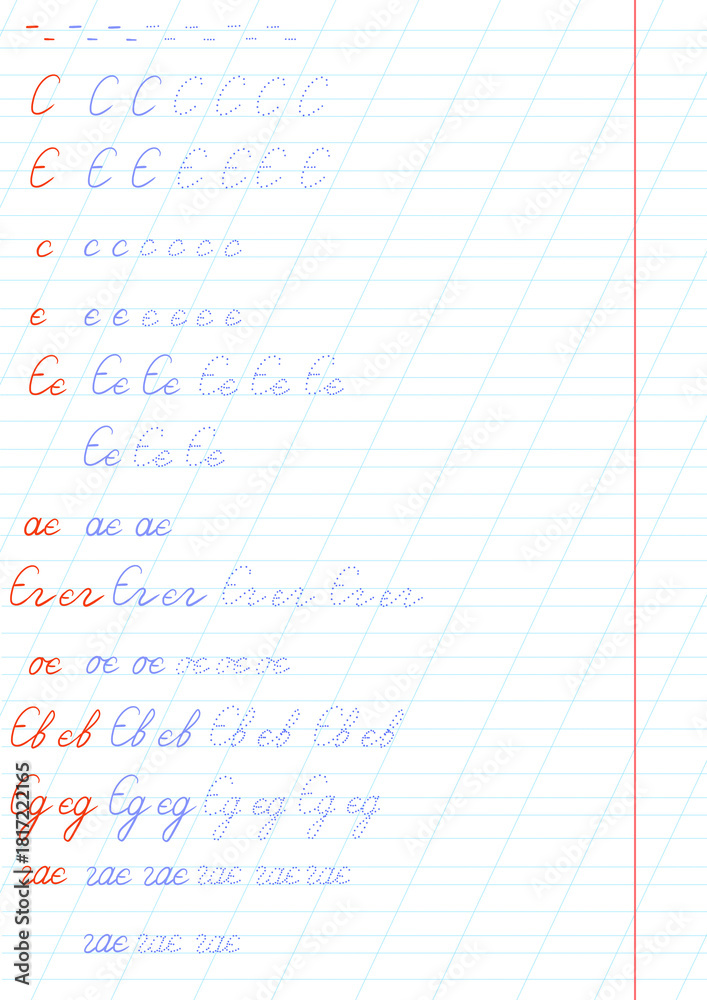 С С С С С С С
Є Є Є Є Є Є Є
с с с с с с с
є є є є є є є
Єє Єє Єє Єє Єє Єє
Єє Єє Єє
ає ає ає
Єг єг Єг єг Єг єг Єг єг
оє оє оє оє оє оє
Єв єв Єв єв Єв єв Єв єв
Єд єд Єд єд Єд єд Єд єд
гає гає гає гає гає гає
гає гає гає
Adobe Stock | #1817222165